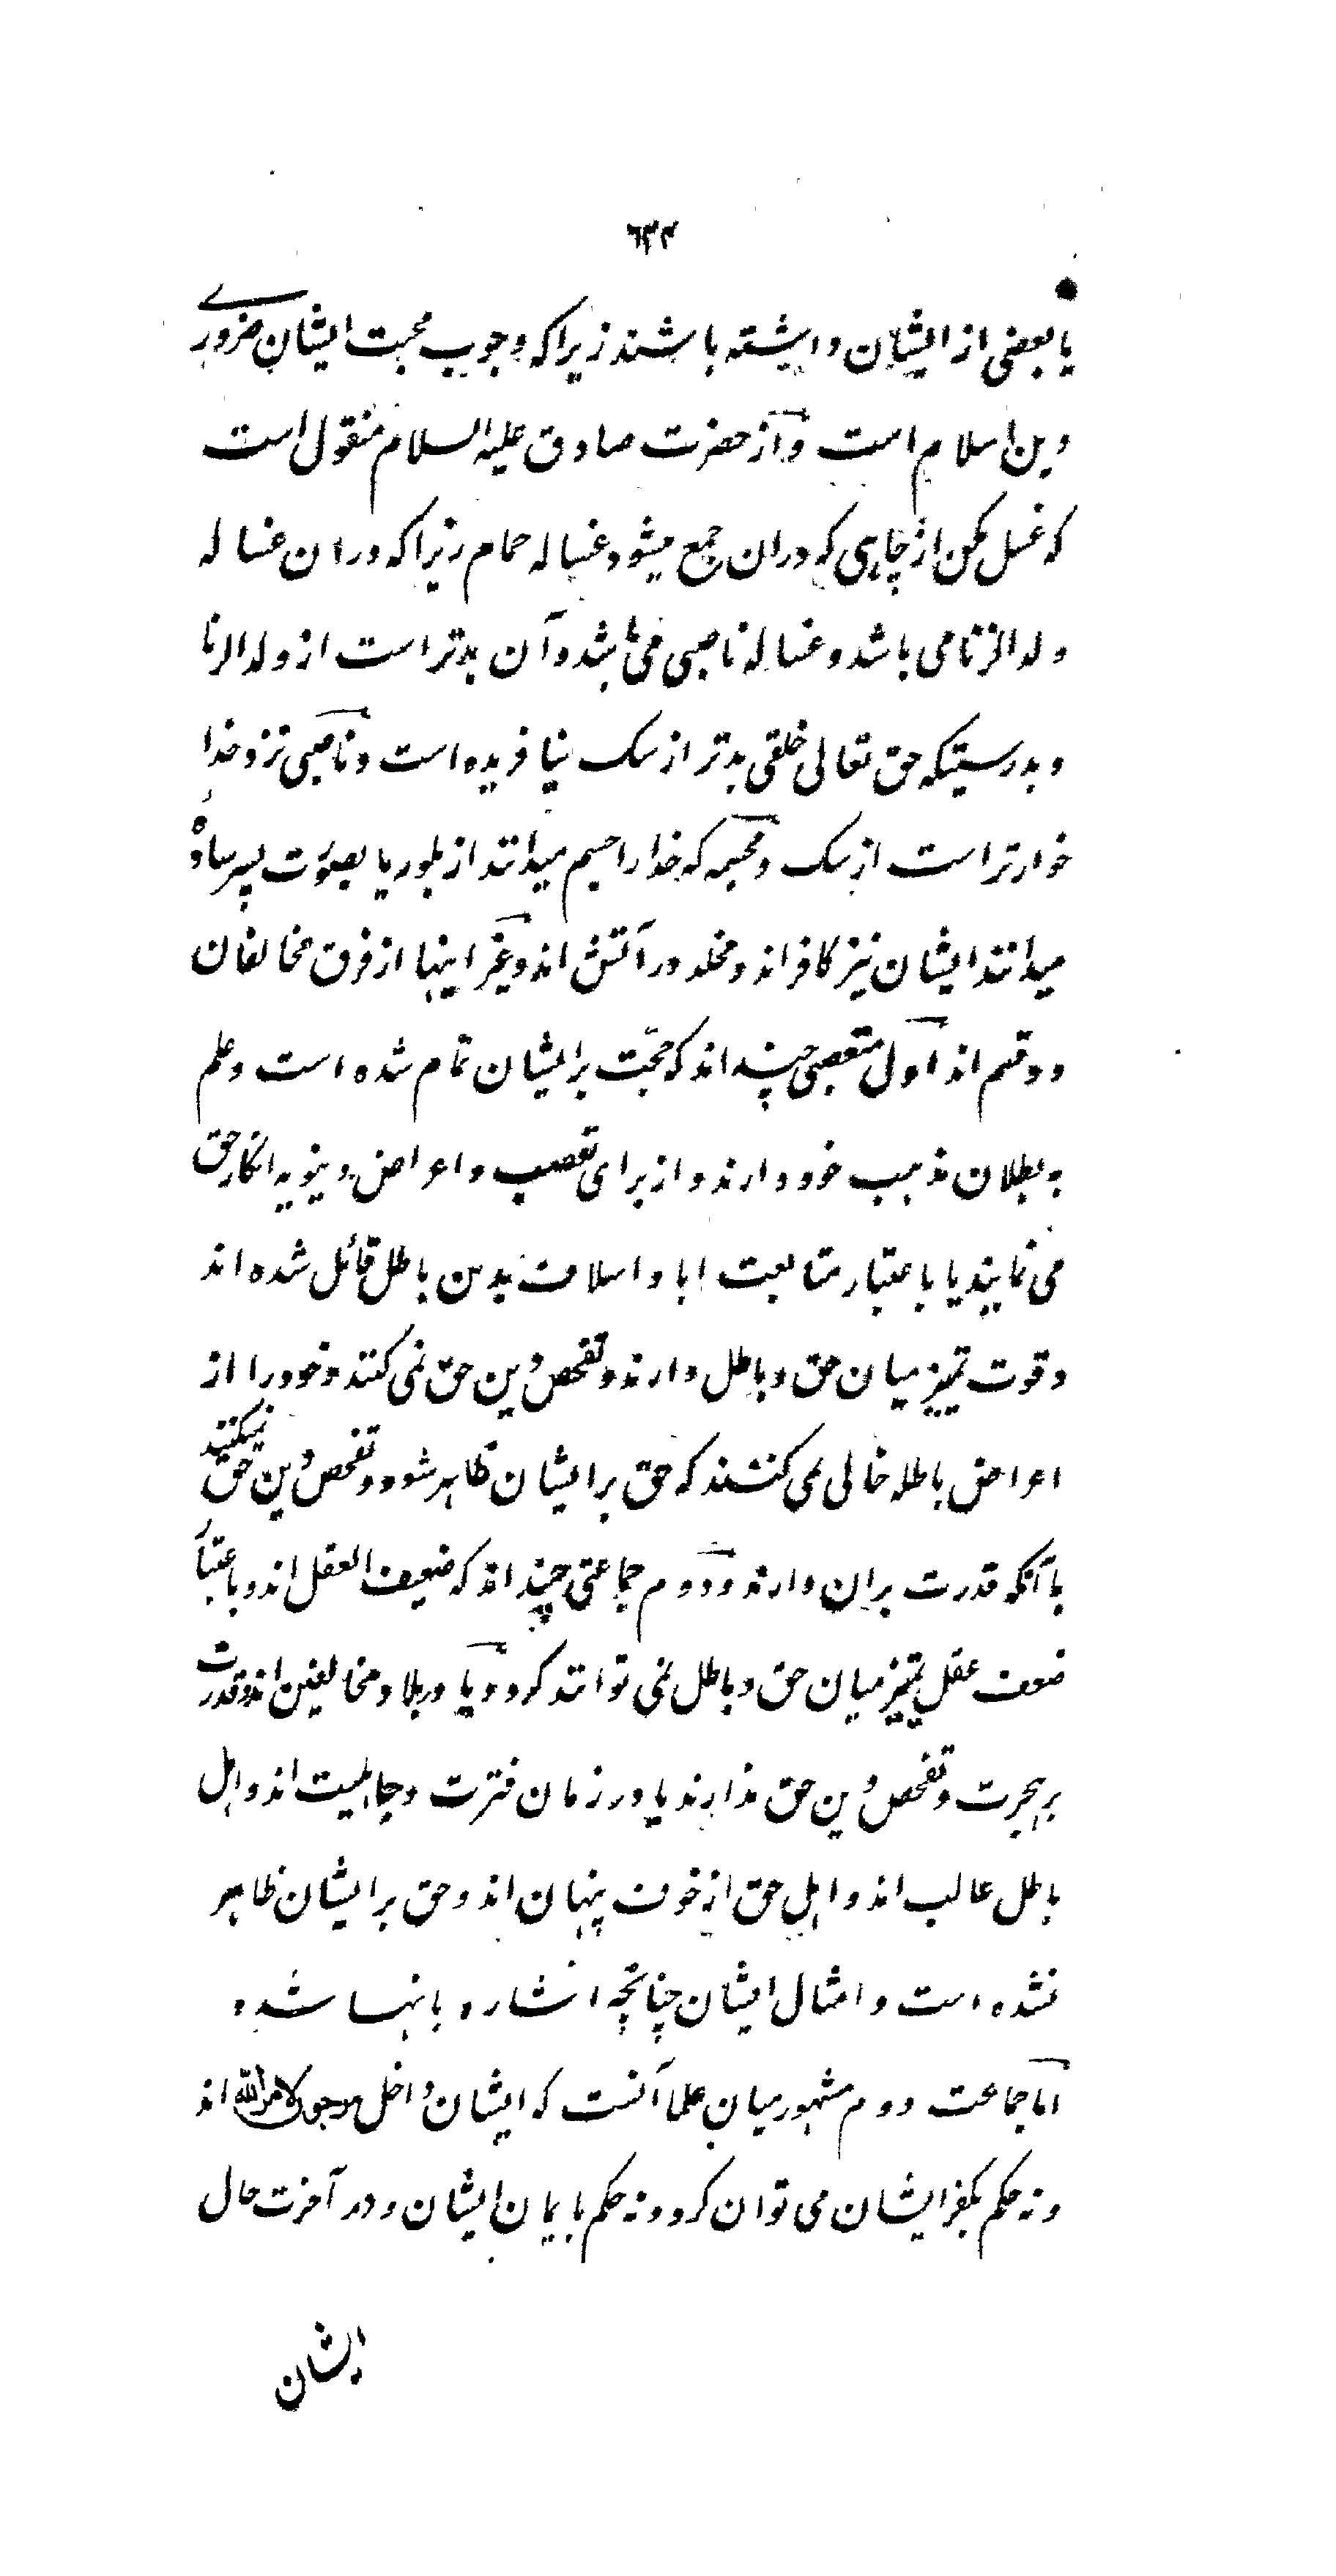 ٦٣٣
یا بعضی از ایشان داشته باشند زیرا که وجوب محبت ایشان ضروری
دین اسلام است و از حضرت صادق علیه السلام منقول است
که غسل مکن از چاهی که دران جمع میشود غساله حمام زیرا که دران غساله
ولد الزنا می باشد و غساله ناصبی می باشد و آن بدتر است از ولد الزنا
و بدرستیکه حق تعالی خلقی بدتر از سک نیافریده است و ناصبی نزد خدا
خوارتر است از سک و مجسمه که خدا را جسم میدانند از بلور یا بصورت پسر ساده
میدانند ایشان نیز کافراند و مخلد در آتش اند و غیر اینها از فرق مخالفان
دو قسم اند اول متعصبی چند اند که حجّت بر ایشان تمام شده است و علم
به بطلان مذهب خود دارند و از برای تعصب و اعراض دینویه انکار حق
می نمایند یا باعتبار متابعت ابا و اسلاف بدین باطل قائل شده اند
و قوت تمییز میان حق و باطل دارند و تفحص دین حق نمی کنند و خود را از
اعراض باطله خالی نمی کنند که حق بر ایشان ظاهر شود و تفحص دین حق نمیکنند
با آنکه قدرت بران دارند و دوم جماعتی چند اند که ضعیف العقل اند و باعتبار
ضعف عقل تمییز میان حق و باطل نمی توانند کرد و یا در بلاد مخالفین اند و قدرت
بر هجرت و تفحص دین حق ندارند یا در زمان فترت و جاهلیت اند و اهل
باطل غالب اند و اهل حق از خوف پنهان اند و حق بر ایشان ظاهر
نشده است و امثال ایشان چنانچه اشاره بانها شده
اما جماعت دوم مشهور میان علما آنست که ایشان داخل مرجون لامر الله اند
و نه حکم بکفر ایشان می توان کرد و نه حکم بایمان ایشان و در آخرت حال
ایشان